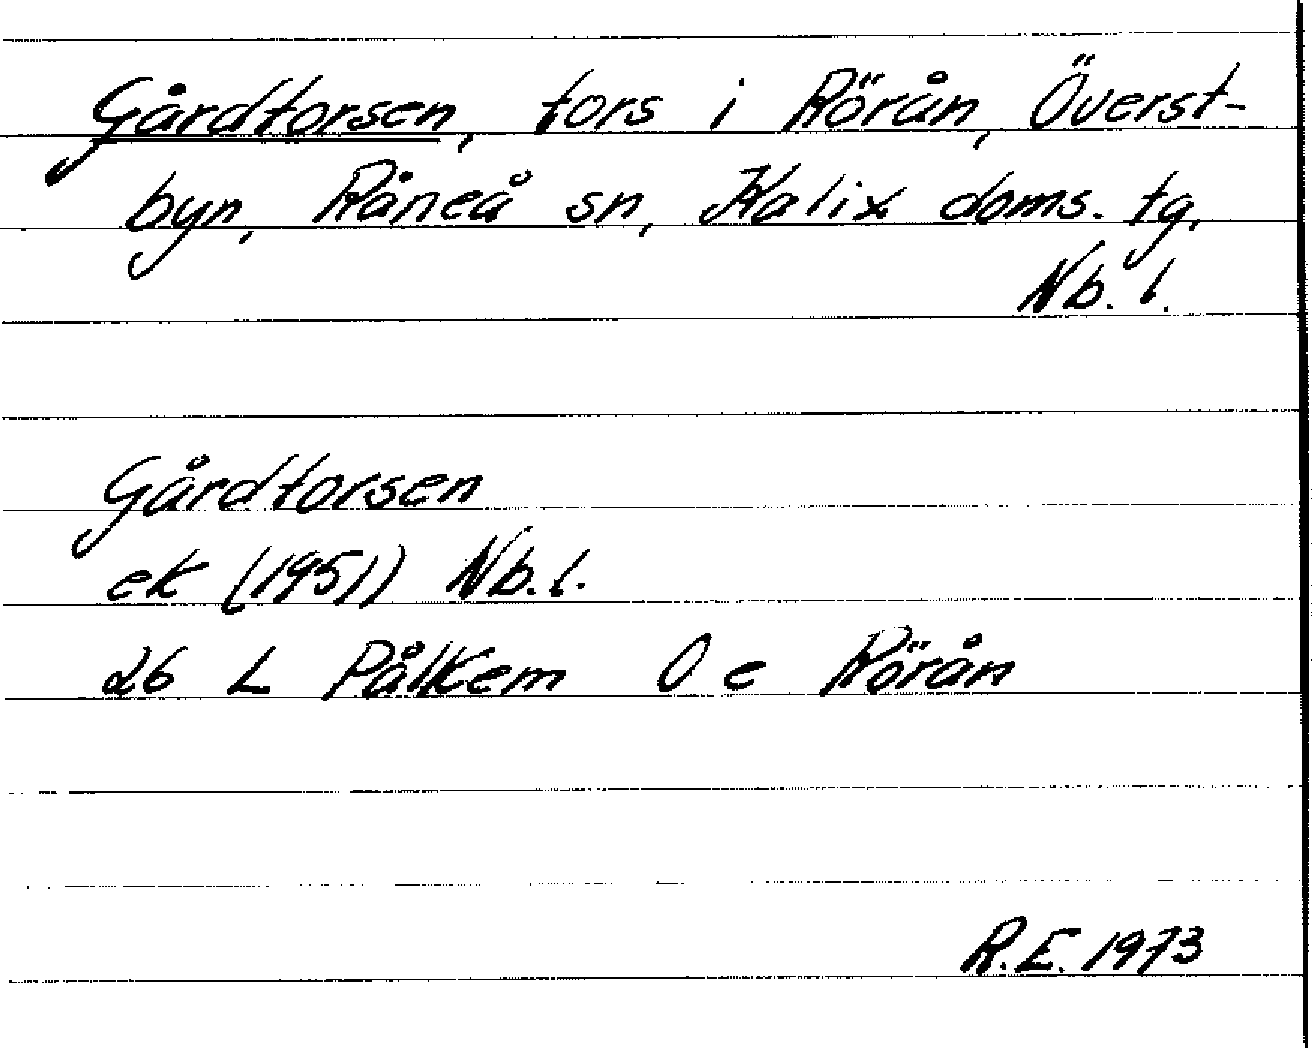 Gårdforsen, fors i Rörån, Överst-
byn, Råneå sn, Kalix doms. tg,
Nb. l.
Gårdforsen
ek (1951) Nb. l.
26 L Pålkem 0 e Rörån
R.E. 1973